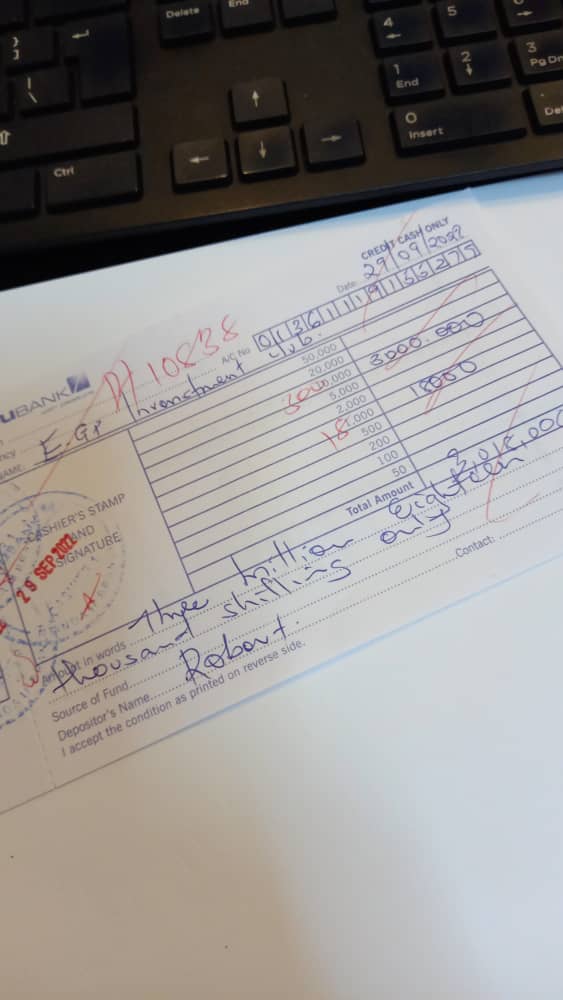 }
]
|
\
Ctrl
Delete
End
4
5
1
End
2
3
Pg Dn
0
Insert
Del
UBANK
CREDIT CASH ONLY
Date: 29/09/2022
A/C No
10838
ncy
NAME: E-GP Investment Club.
50,000
20,000
10,000 3000.000
5,000
2,000
1,000 18000
500
200
100
50
Total Amount 3,018,000
CASHIER'S STAMP
AND
SIGNATURE
29 SEP 2022
Amount in words three million Eighteen
thousand shilling only
Source of Fund
Contact:
Depositor's Name Robert.
I accept the condition as printed on reverse side.